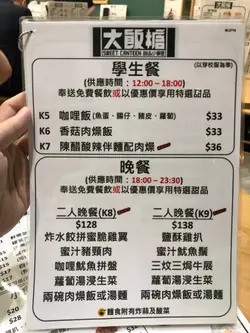 大飯糖
SWEET CANTEEN 甜品小食室
學生餐
(以穿校服為準)
(供應時間：12:00 – 18:00)
奉送免費餐飲或以優惠價享用特選甜品
K5 咖哩飯(魚蛋、腸仔、豬皮、蘿蔔) $33
K6 香菇肉燥飯 $33
K7 陳醋酸辣伴麵配肉燥 $36
晚餐
(供應時間：18:00 – 23:30)
奉送免費餐飲或以優惠價享用特選甜品
二人晚餐(K8)
$128
炸水餃拼蜜脆雞翼
蜜汁豬頸肉
咖哩魷魚拼盤
蘿蔔湯浸生菜
兩碗肉燥飯或湯麵
二人晚餐(K9)
$138
鹽酥雞扒
蜜汁魷魚鬚
三炆三焗牛展
蘿蔔湯浸生菜
兩碗肉燥飯或湯麵
麵食附有炸蒜及酸菜